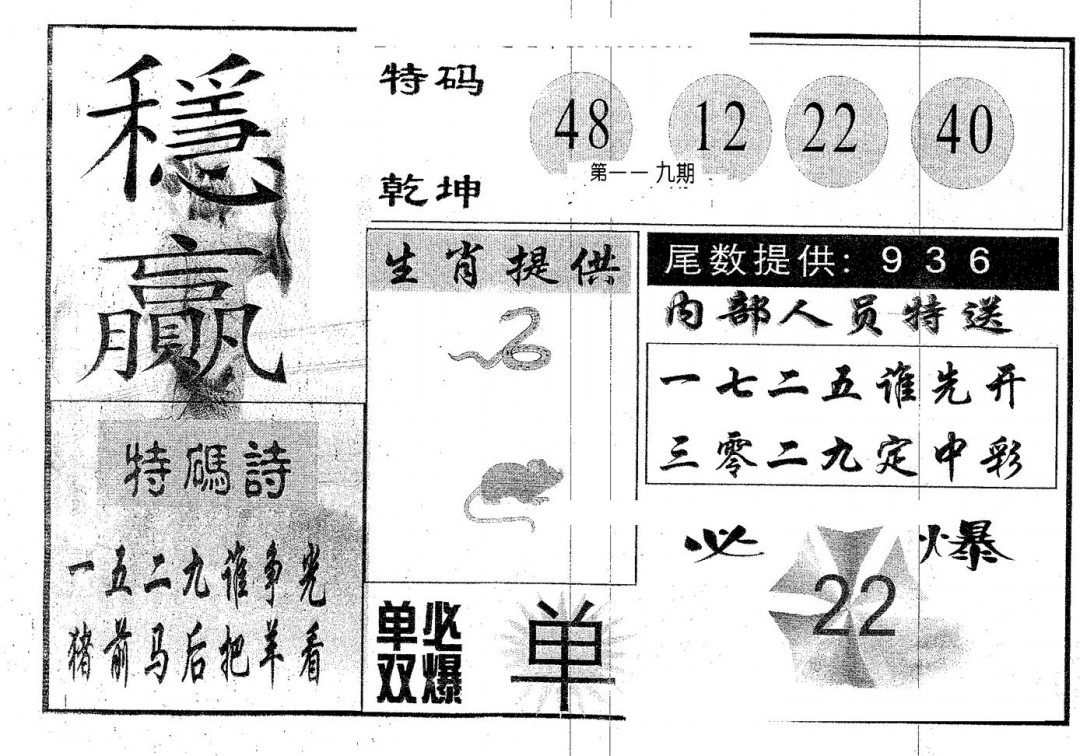 穩
赢
特码
乾坤
48 12 22 40
第一一九期
生肖提供
尾数提供: 9 3 6
内部人员特送
一七二五谁先开
三零二九定中彩
特碼詩
一五二九谁争光
猪前马后把羊看
单双
必爆
单
必爆
22